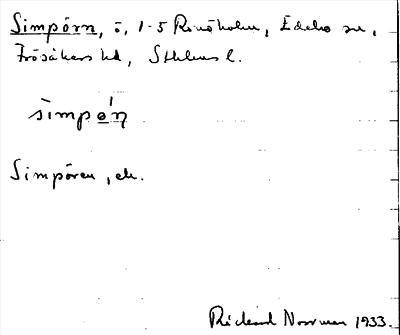 Simpörn, ö, 1-5 Rånöholm, Edebo sn,
Frösåkers hd, Sthlms l.
simpǫ́n̥
Simpören, ek.
Rickard Norrman 1933.